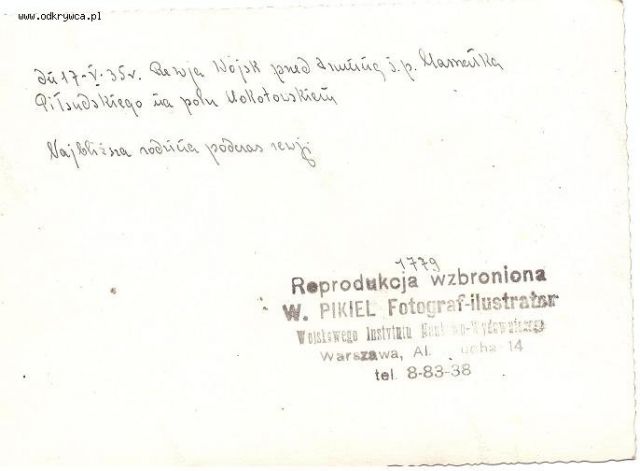 www.odkrywca.pl
dn 17-V-35r. Rewja Wojsk przed trumną ś.p. Marszałka
Piłsudskiego na polu Mokotowskiem
Najbliższa rodzina podczas rewji
1779
Reprodukcja wzbroniona
W. PIKIEL Fotograf-ilustrator
Wojskowego Instytutu Nauk wo-Wydawniczego
Warszawa, Al. ucha 14
tel. 8-83-38